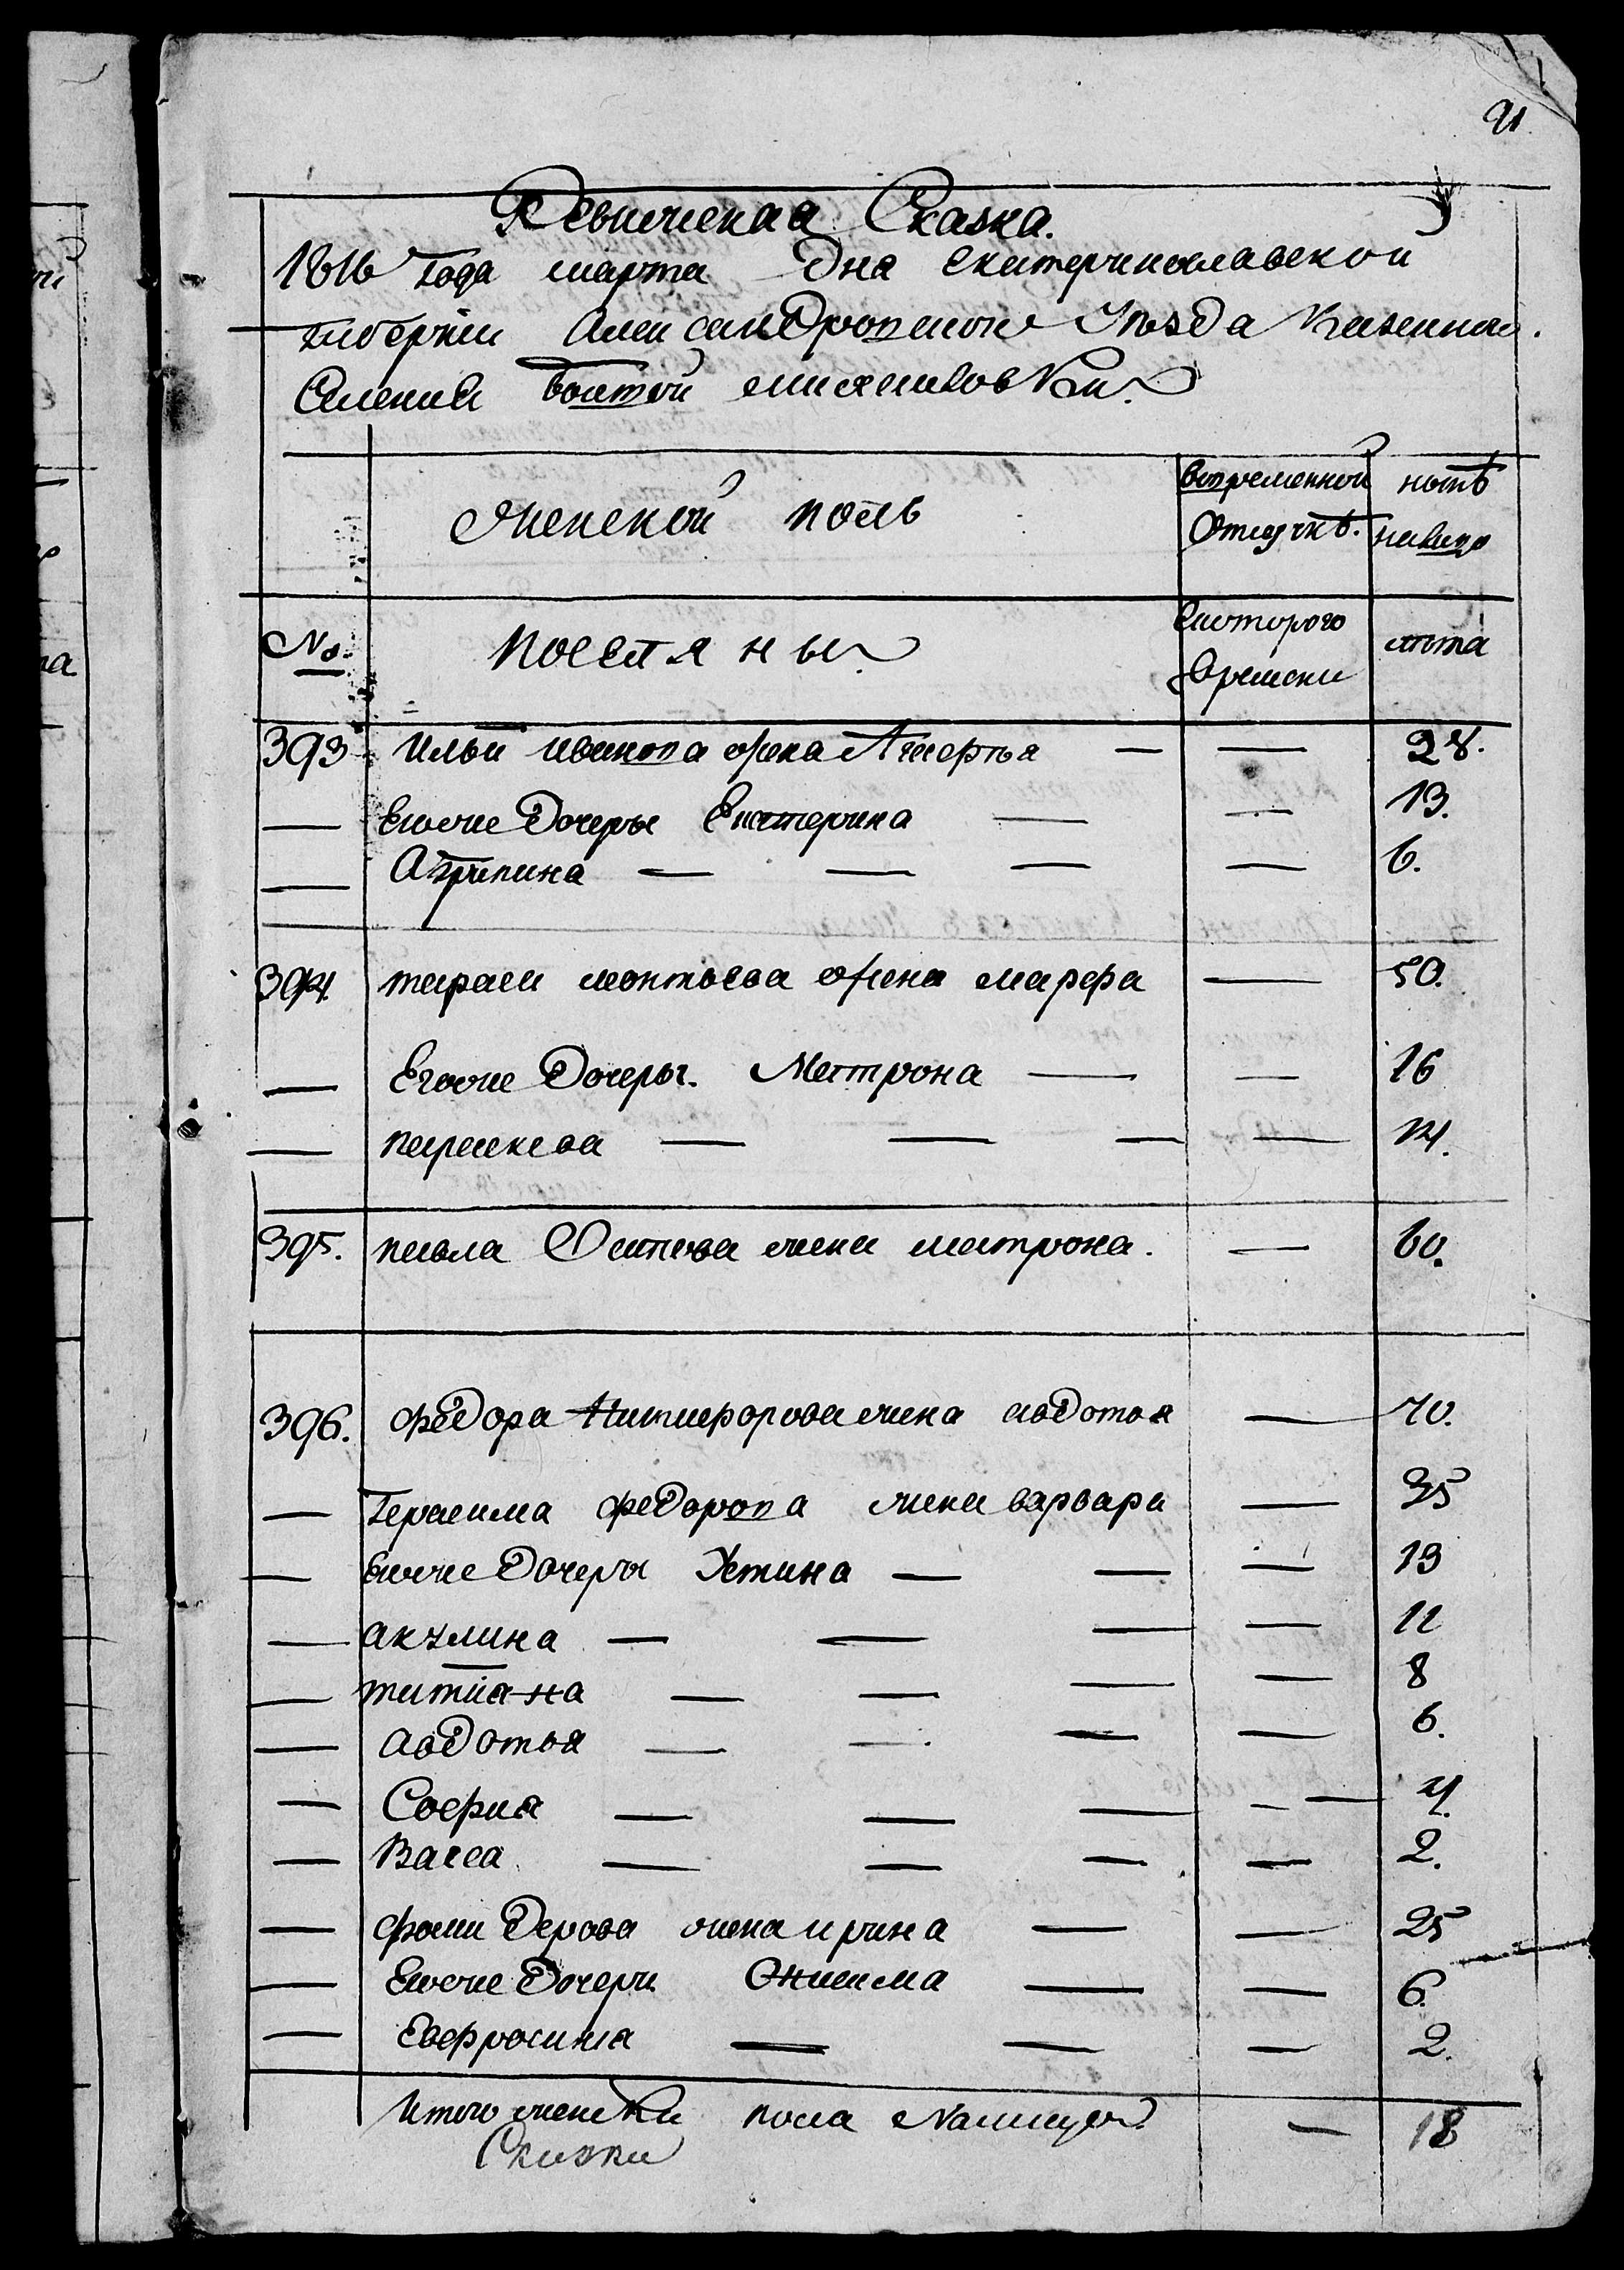 91
Ревизская Сказка.
1816 года марта дня екатеринославской
губернии Александровского уезда казенного
Селения богтой михайловки.
женской полъ
вовременной
отлучкѣ.
нынѣ
налицо
No.
поселяны
Скоторого
времени
лѣта
393 ильи иванова жена Лукерья — — 28.
— Егоже Дочеры Екатерина — — 13.
— Агрипина — — — — 6.
394. тараса леонтьева жена марфа — 50.
— Егоже Дочеры. Матрона — — 16
— параскева — — — — 14.
395. павла Осипова жена матрона. — 60.
396. федора Никифорова жена авдотья — 70.
— Герасима федорова жена варвара — 35
— Егоже Дочеры Устина — — — 13
— акулина — — — — 11
— титиана — — — — 8
— авдотья — — — — 6.
— София — — — — 4.
— Васса — — — — 2.
— фомы Дерова жена ирина — — 25
— Егоже Дочери Онисима — — 6.
— Евфросиния — — — 2.
Итого женска пола Налицо — 18
Сказки